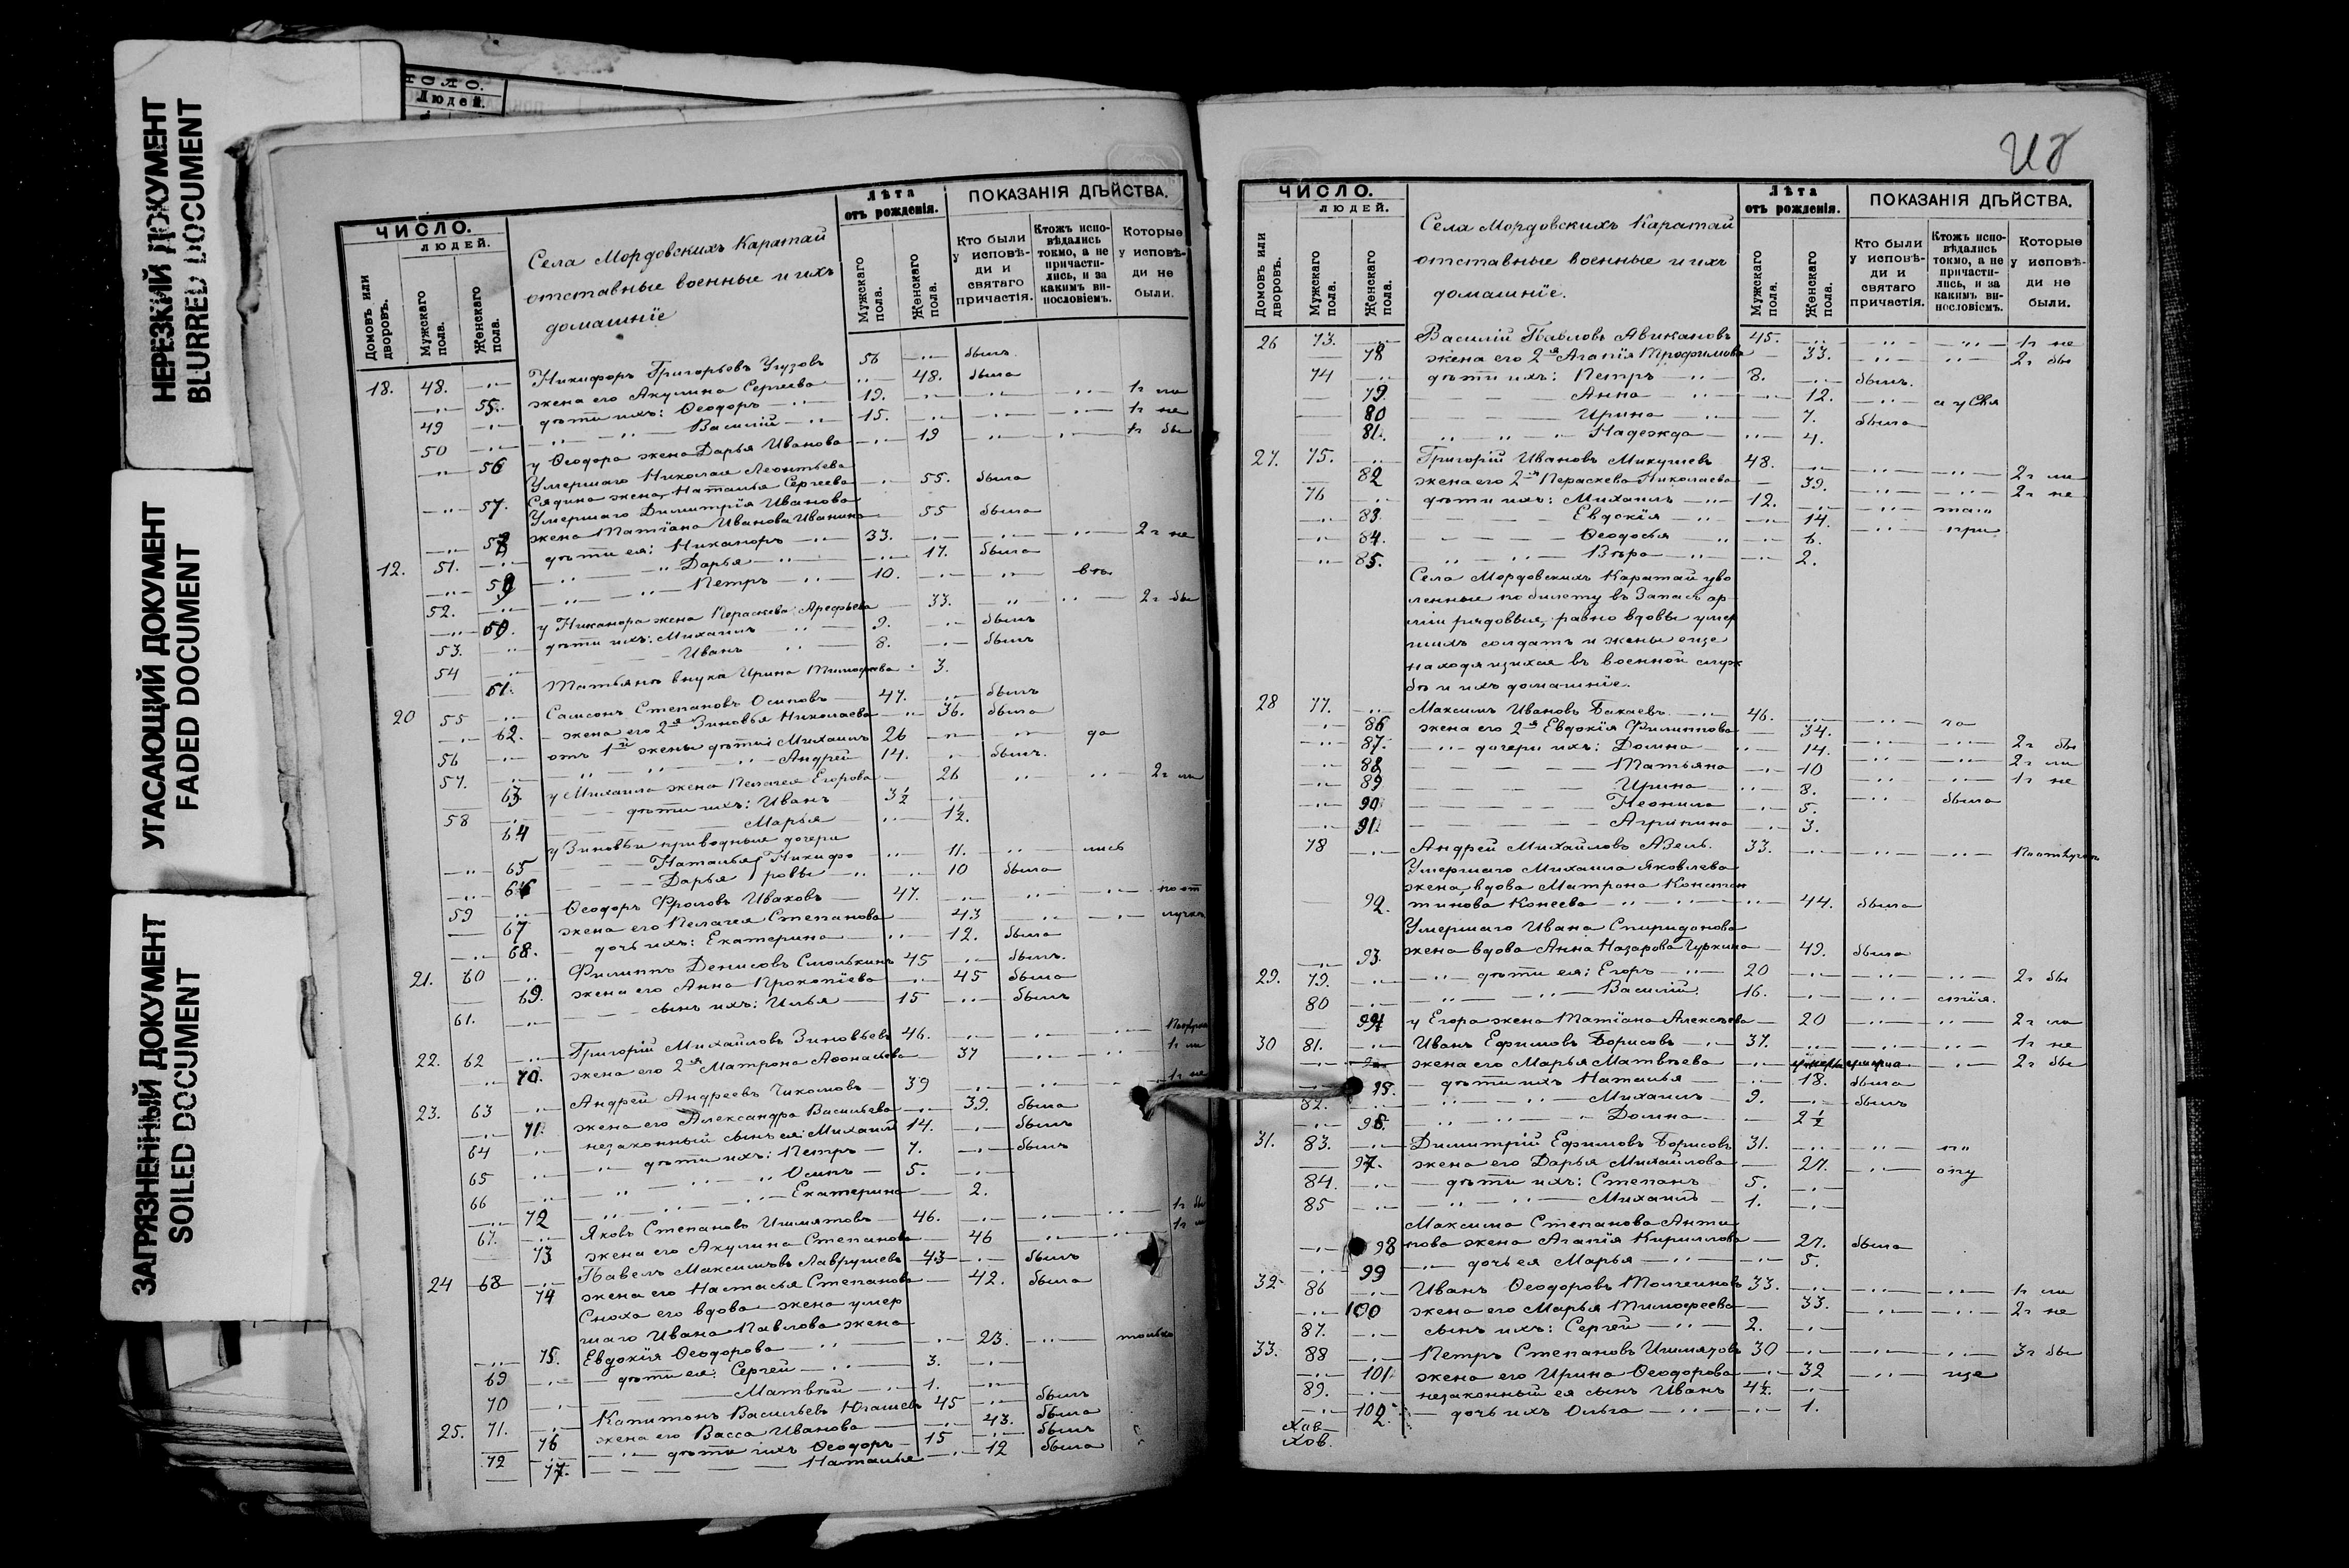 НЕРЕЗКИЙ ДОКУМЕНТ
BLURRED DOCUMENT
УГАСАЮЩИЙ ДОКУМЕНТ
FADED DOCUMENT
ЗАГРЯЗНЕННЫЙ ДОКУМЕНТ
SOILED DOCUMENT
Людей.
ЧИСЛО.
ЛЮДЕЙ.
Домовъ или дворовъ.
Мужскаго пола.
Женскаго пола.
Села Мордовскихъ Каратай
отставные военные и ихъ
домашніе
Лѣта
отъ рожденія.
Мужскаго пола.
Женскаго пола.
ПОКАЗАНІЯ ДѢЙСТВА.
Кто были у исповѣди и святаго причастія.
Ктожъ исповѣдались токмо, а не причастились, и за какимъ винословіемъ.
Которые у исповѣди не были.
18. 48. Никифоръ Григорьевъ Угузовъ 56 былъ
55. жена его Акулина Сергеева 48. была
49 дѣти ихъ: Ѳеодоръ 19. 1 г ли
50 Василій 15. 1 г не
56 у Ѳеодора жена Дарья Иванова 19 1 г бы
Умершаго Николая Леонтьева
57. Сядина жена Наталья Сергеева 55. была
Умершаго Димитрія Иванова
58 жена Татіана Иванова Иванина 55 была
12. 51. дѣти ея: Никаноръ 33. 2 г не
59 Дарья 17. была
52. Петръ 10.
у Никанора жена Параскева Арефьева 33. 2 г бы
53. дѣти ихъ: Михаилъ 9. былъ
54 Иванъ 8. былъ
61. Татьянѣ внука Ирина Тимофеева 3.
20 55 Самсонъ Степановъ Осиповъ 47. былъ
62. жена его 2я Зиновья Николаева 36. была
56 отъ 1й жены дѣти: Михаилъ 26 да
57. Андрей 14. былъ.
63. у Михаила жена Пелагея Егорова 26 2 г ли
58 дѣти ихъ: Иванъ 3½
64 Марья 1½.
у Зиновьи приводныя дочери
65 Наталья Никифо 11. лись
66 Дарья ровы 10 была
59 Ѳеодоръ Фроловъ Иваковъ 47. по от
67 жена его Пелагея Степанова 43 лучкѣ
68. дочь ихъ: Екатерина 12. была
21. 60 Филиппъ Денисовъ Смолькинъ 45 былъ.
69. жена его Анна Прокопіева 45 была
61. сынъ ихъ: Илья 15 былъ
22. 62 Григорій Михайловъ Зиновьевъ 46.
70. жена его 2я Матрона Аѳонасьева 37 1 г ли
23. 63 Андрей Андреевъ Чикановъ 39 1 г не
71. жена его Александра Васильева 39. была
64 незаконный сынъ ея: Михаилъ 14. былъ
65 дѣти ихъ: Петръ 7. былъ
66 Осипъ 5.
72 Екатерина 2.
67. Яковъ Степановъ Ишмятовъ 46. 1 г бы
73 жена его Акулина Степанова 46
24 68 Павелъ Максимовъ Лаврушевъ 43 былъ
74 жена его Настасья Степанова 42. была
Сноха его вдова жена умер
шаго Ивана Павлова жена
75. Евдокія Ѳеодорова 23. только
69 дѣти ея: Сергей 3.
70 Матвѣй 1.
25. 71. Капитонъ Васильевъ Юлашевъ 45 былъ
76 жена его Васса Иванова 43. была
72 дѣти ихъ Ѳеодоръ 15 былъ
77. Наталья 12 была
ЧИСЛО.
ЛЮДЕЙ.
Домовъ или дворовъ.
Мужскаго пола.
Женскаго пола.
Села Мордовскихъ Каратай
отставные военные и ихъ
домашніе.
Лѣта
отъ рожденія.
Мужскаго пола.
Женскаго пола.
ПОКАЗАНІЯ ДѢЙСТВА.
Кто были у исповѣди и святаго причастія.
Ктожъ исповѣдались токмо, а не причастились, и за какимъ винословіемъ.
Которые у исповѣди не были.
26 73. Василій Павловъ Авикановъ 45. 1 г не
78 жена его 2я Агапія Трофимова 33. 2 г бы
74 дѣти ихъ: Петръ 8. былъ.
79. Анна 12.
80 Ирина 7. была
81. Надежда 4.
27. 75. Григорій Ивановъ Микушевъ 48.
82 жена его 2я Параскева Николаева 39. 2 г ли
76 дѣти ихъ: Михаилъ 12. 2 г не
83. Евдокія 14.
84. Ѳеодосья 6. при
85. Вѣра 2.
Села Мордовскихъ Каратай уво
ленные по билету въ Запасъ ар
міи рядовые, равно вдовы умер
шихъ солдатъ и жены еще
находящихся въ военной служ
бѣ и ихъ домашніе.
28 77. Максимъ Ивановъ Бакаевъ 46.
86 жена его 2я Евдокія Филиппова 34.
87. дочери ихъ: Домна 14. 2 г бы
88 Татьяна 10 2 г ли
89 Ирина 8. 1 г не
90 Неонила 5. была
91 Агрипина 3.
78 Андрей Михайловъ Азель. 33. По отлучкѣ
Умершаго Михаила Яковлева
жена вдова Матрона Констан
92. тинова Конеева 44. была
Умершаго Ивана Спиридонова
93. жена вдова Анна Назарова Чуркина 49. была
29. 79. дѣти ея: Егоръ 20 2 г бы
80 Василій. 16. стія.
94 у Егора жена Татіана Алексѣева 20 2 г ли
30 81. Иванъ Ефимовъ Борисовъ 37. 1 г не
жена его Марья Матвѣева 2 г бы
95. дѣти ихъ Наталья 18. была
82. Михаилъ 9. былъ
96. Домна 2½
31. 83. Димитрій Ефимовъ Борисовъ 31.
97. жена его Дарья Михайлова 27.
84. дѣти ихъ: Степанъ 5.
85 Михаилъ 1.
Максима Степанова Анти
98 пова жена Агапія Кириллова 27. была
99 дочь ея Марья 5.
32 86 Иванъ Ѳеодоровъ Толчеиновъ 33. 1 г ли
100 жена его Марья Тимофеева 33. 2 г не
87. сынъ ихъ: Сергей 2.
33. 88 Петръ Степановъ Ишмятовъ 30 3 г бы
101 жена его Ирина Ѳеодорова 32 еще
89. незаконный ея сынъ Иванъ 4½.
102. дочь ихъ Ольга 1.